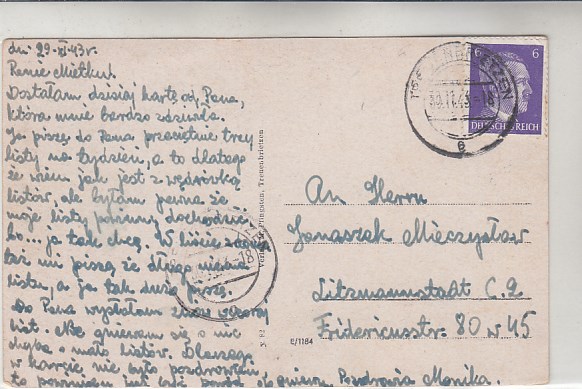 dn 29-XI-43r.
Panie Mietku!
Dostałam dzisiaj kartę od Pana,
która mnie bardzo zdziwiła.
Ja piszę do Pana przeciętnie trzy
listy na tydzień, a to dlatego
że wiem jak jest z wędrówką
listów, ale byłam pewna że
moje listy powinny dochodzić,
bo... ja tak chcę. W liście
też mi pisze że długo niema
listu, a ja tak dużo piszę.
Do Pana wysłałam znów wczoraj
list. Nie gniewam się o nic
chyba o mało listów. Dlaczego
w karcie nie było pozdrowień,
to powinno być Pozdrawia Monika.
Verlag Pfingsten, Treuenbrietzen
y 82
E/1184
TREUENBRIETZEN
30.11.43.-18
e
6
DEUTSCHES REICH
An Herrn
Janaszek Mieczysław
Litzmannstadt C.2
Fridericusstr. 80 w 45